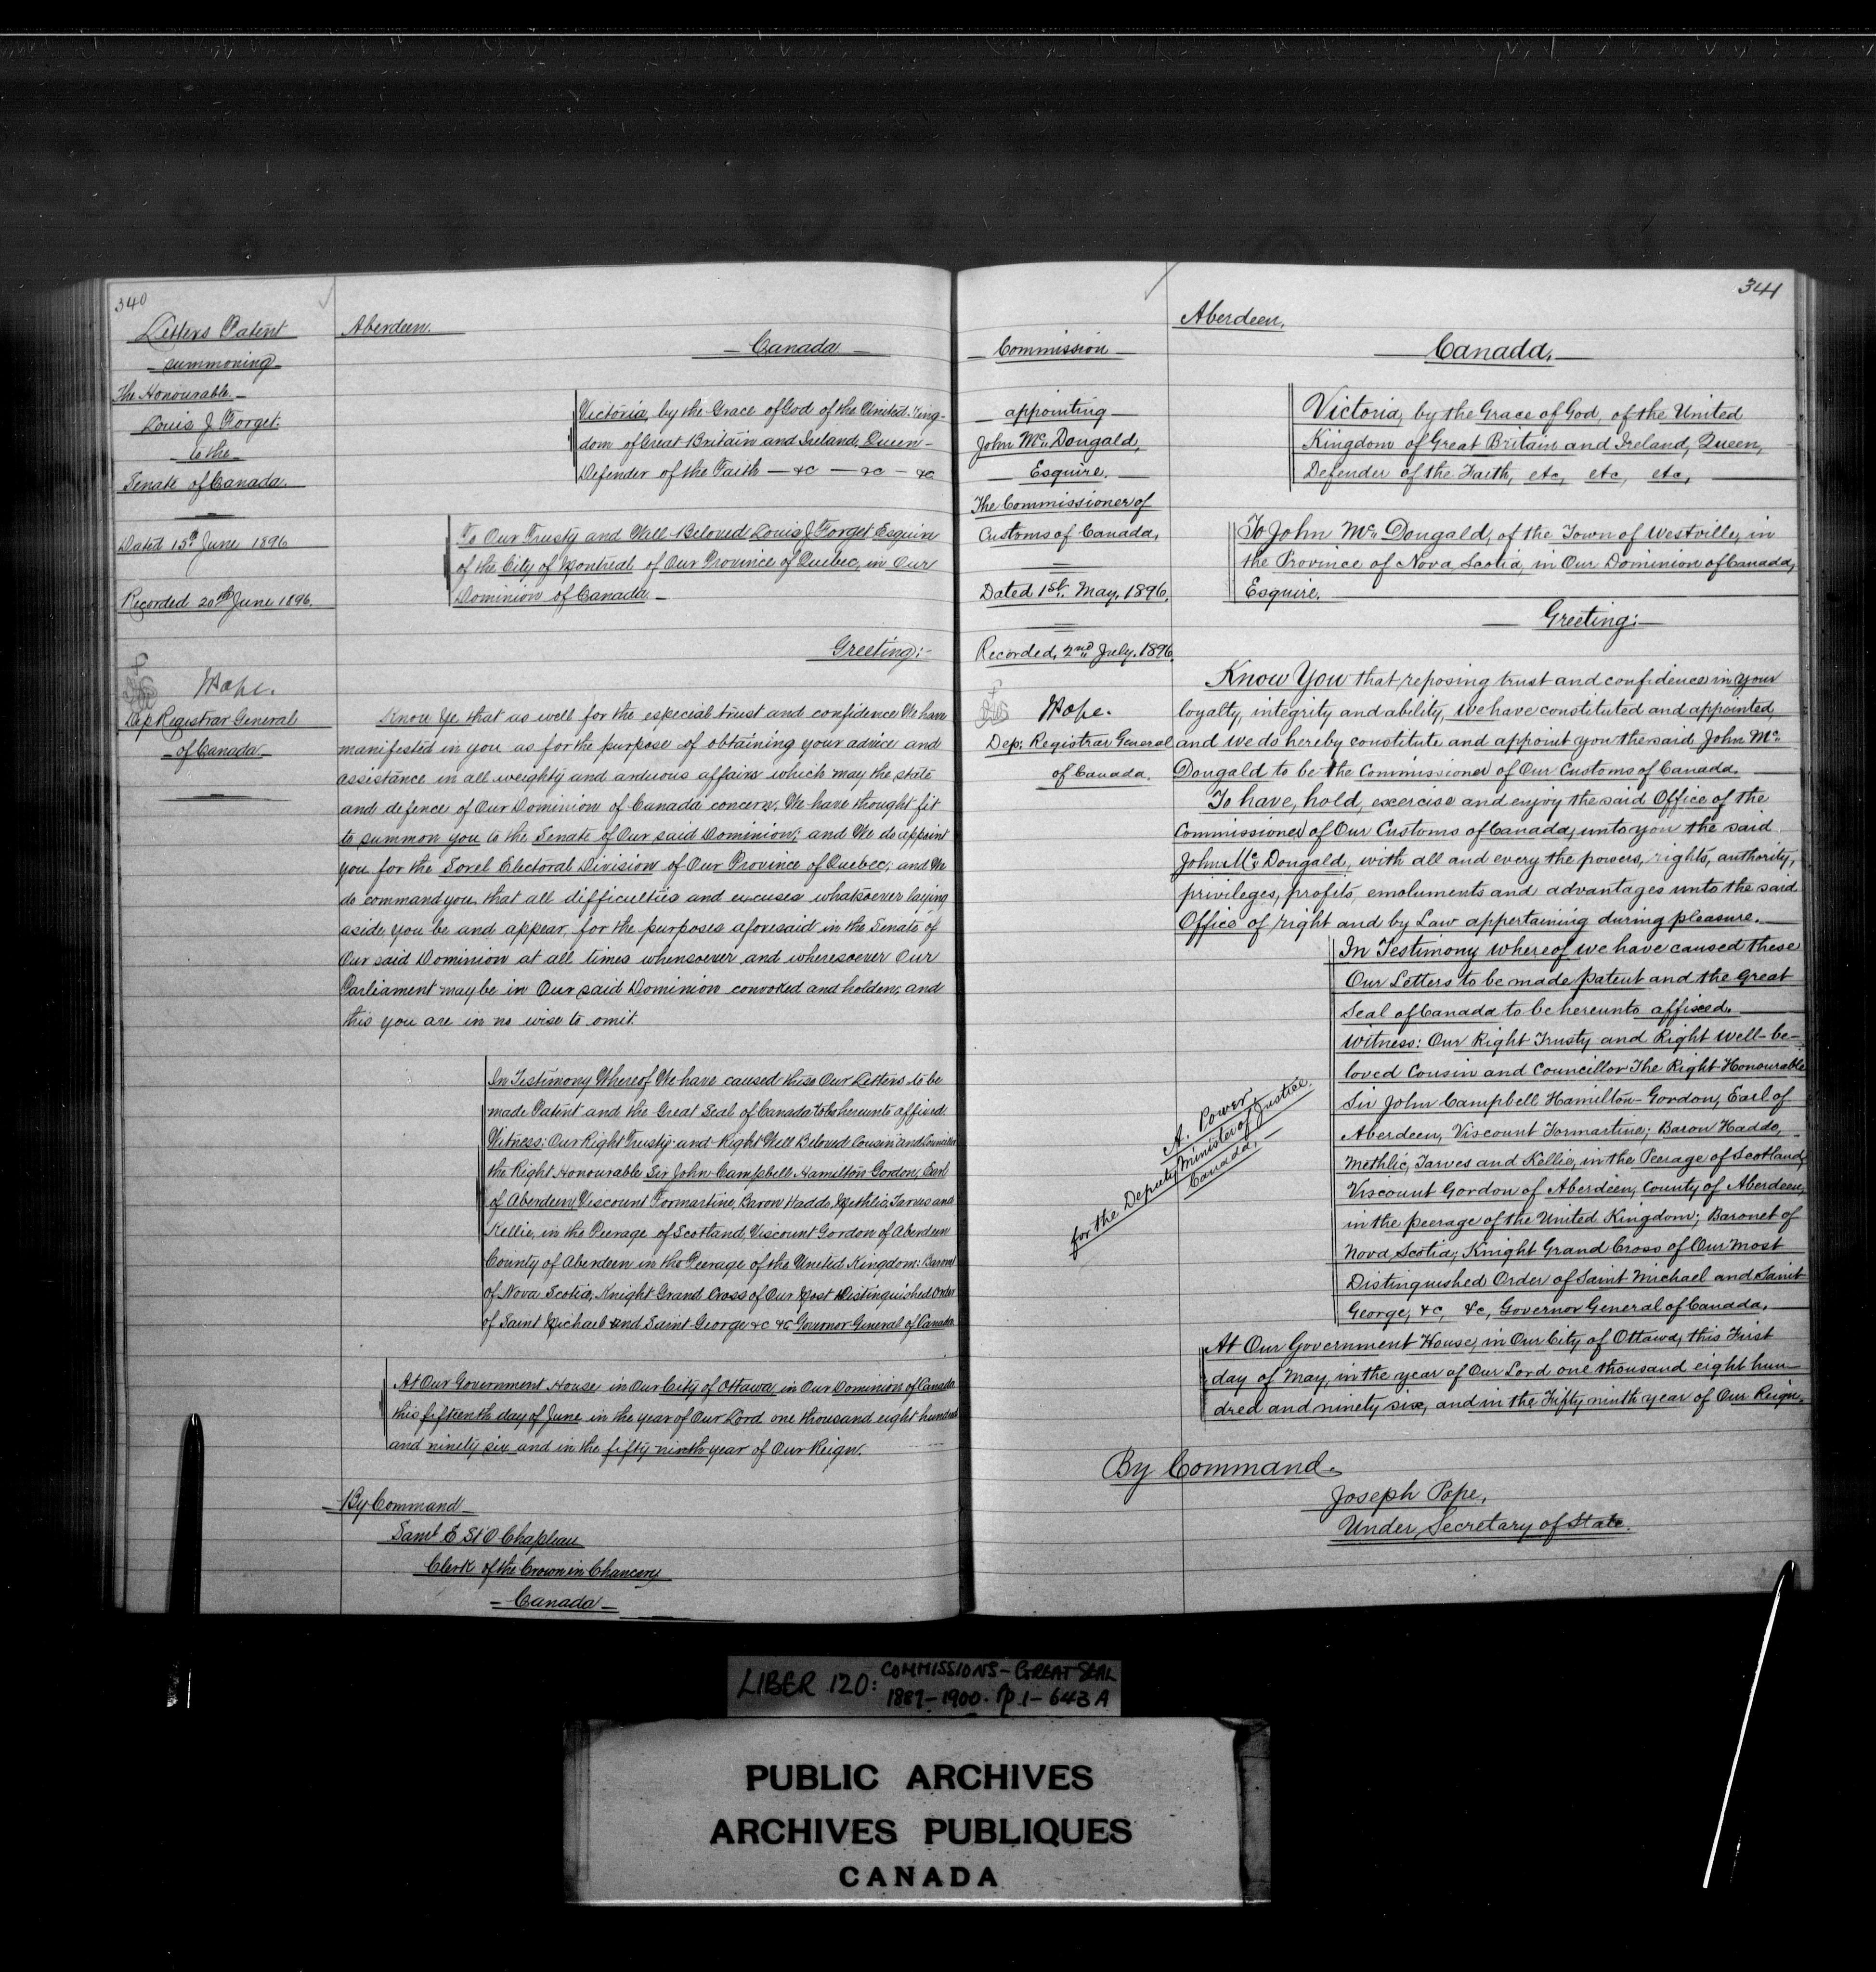 340
Letters Patent
summoning
The Honourable
Louis J Forget
to the
Senate of Canada
Dated 15th June 1896
Recorded 20th June 1896.
JPope.
Dep Registrar General
of Canada
Aberdeen.
Canada
Victoria, by the Grace of God of the United King-
dom of Great Britain and Ireland, Queen
Defender of the Faith — &c — &c — &c
To Our Trusty and Well Beloved Louis J Forget Esquire
of the City of Montreal of Our Province of Quebec, in Our
Dominion of Canada
Greeting:-
Know Ye that as well for the especial trust and confidence We have
manifested in you as for the purpose of obtaining your advice and
assistance in all weighty and arduous affairs which may the state
and defence of Our Dominion of Canada concern, We have thought fit
to summon you to the Senate of Our said Dominion; and We do appoint
you for the Sorel Electoral Division of Our Province of Quebec; and We
do command you, that all difficulties and excuses whatsoever laying
aside you be and appear for the purposes aforesaid in the Senate of
Our said Dominion at all times whensoever and wheresoever Our
Parliament may be in Our said Dominion convoked and holden; and
this you are in no wise to omit.
In Testimony Whereof We have caused these Our Letters to be
made Patent and the Great Seal of Canada to be hereunto affixed
Witness: Our Right Trusty and Right Well Beloved Cousin and Councillor
the Right Honourable Sir John Campbell Hamilton Gordon, Earl
of Aberdeen, Viscount Formartine, Baron Haddo, Methlic, Tarves and
Kellie, in the Peerage of Scotland, Viscount Gordon of Aberdeen
County of Aberdeen in the Peerage of the United Kingdom: Baronet
of Nova Scotia, Knight Grand Cross of Our Most Distinguished Order
of Saint Michael and Saint George &c &c Governor General of Canada
At Our Government House in Our City of Ottawa, in Our Dominion of Canada
this fifteenth day of June in the year of Our Lord one thousand eight hundred
and ninety six and in the fifty ninth year of Our Reign.
By Command
Saml E St O Chapleau
Clerk of the Crown in Chancery
Canada
341
Commission
appointing
John Mc. Dougald,
Esquire.
The Commissioner of
Customs of Canada,
Dated 1st. May, 1896.
Recorded, 2nd July, 1896.
JPope.
Dep: Registrar General
of Canada.
Aberdeen,
Canada,
Victoria, by the Grace of God, of the United
Kingdom of Great Britain and Ireland, Queen,
Defender of the Faith, etc, etc, etc,
To John Mc. Dougald, of the Town of Westville, in
the Province of Nova Scotia, in Our Dominion of Canada,
Esquire.
Greeting:
Know You that reposing trust and confidence in your
loyalty, integrity and ability, we have constituted and appointed,
and we do hereby constitute and appoint you the said John Mc.
Dougald to be the Commissioner of Our Customs of Canada.
To have, hold, exercise and enjoy the said Office of the
Commissioner of Our Customs of Canada, unto you the said
John Mc. Dougald, with all and every the powers, rights, authority,
privileges, profits, emoluments and advantages unto the said
Office of right and by Law appertaining during pleasure.
In Testimony whereof we have caused these
Our Letters to be made patent and the Great
Seal of Canada to be hereunto affixed.
Witness: Our Right Trusty and Right well-be-
loved Cousin and Councillor The Right Honourable
Sir John Campbell Hamilton-Gordon, Earl of
Aberdeen, Viscount Formartine; Baron Haddo,
Methlic, Tarves and Kellie, in the Peerage of Scotland;
Viscount Gordon of Aberdeen, County of Aberdeen,
in the peerage of the United Kingdom; Baronet of
Nova Scotia; Knight Grand Cross of Our Most
Distinguished Order of Saint Michael and Saint
George, &c, &c, Governor General of Canada.
A. Power,
for the Deputy Minister of Justice.
Canada.
At Our Government House, in Our City of Ottawa, this First
day of May, in the year of Our Lord one thousand eight hun-
dred and ninety six, and in the Fifty ninth year of Our Reign.
By Command.
Joseph Pope,
Under Secretary of State.
LIBER 120: COMMISSIONS - GREAT SEAL
1889-1900. pp. 1-643A
PUBLIC ARCHIVES
ARCHIVES PUBLIQUES
CANADA